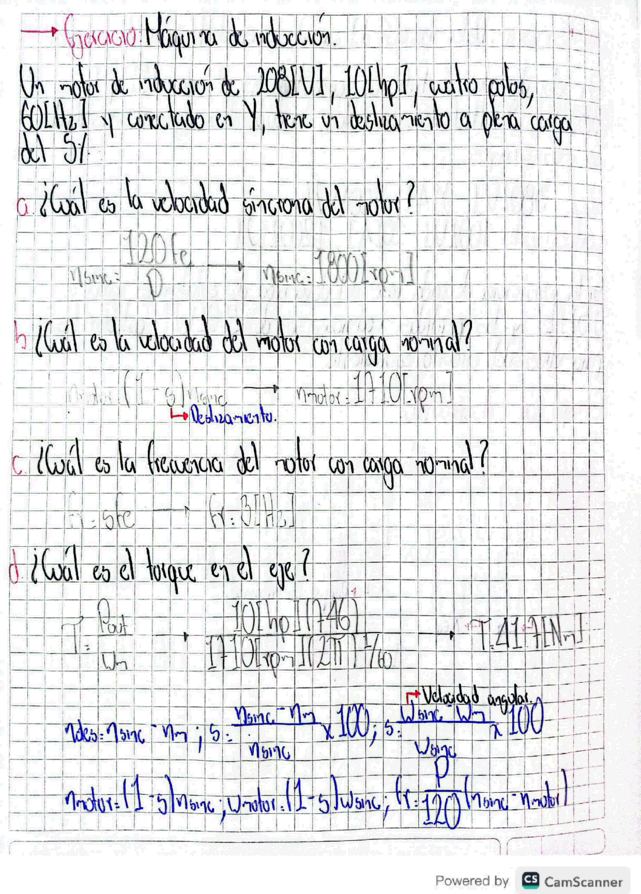 → Ejercicio: Máquina de inducción.
Un motor de inducción de 208[V], 10[hp], cuatro polos,
60[Hz] y conectado en Y, tiene un deslizamiento a plena carga
del 5%.
a. ¿Cuál es la velocidad síncrona del motor?
nsinc = 120fe / P → nsinc = 1800[rpm]
b. ¿Cuál es la velocidad del motor con carga nominal?
nmotor = (1-s)nsinc → nmotor = 1710[rpm]
↳ Deslizamiento.
c. ¿Cuál es la frecuencia del rotor con carga nominal?
fr = sfe → fr = 3[Hz]
d. ¿Cuál es el torque en el eje?
T = Pout / Wm → 10[hp](746) / 1710[rpm](2π) 1/60 → T = 41.7[Nm]
↱ Velocidad angular.
ndes = nsinc - nm ; s = nsinc - nm / nsinc x 100 ; s = Wsinc - Wm / Wsinc x 100
nmotor = (1-s)nsinc ; wmotor = (1-s)wsinc ; fr = P / 120 (nsinc - nmotor)
Powered by CS CamScanner